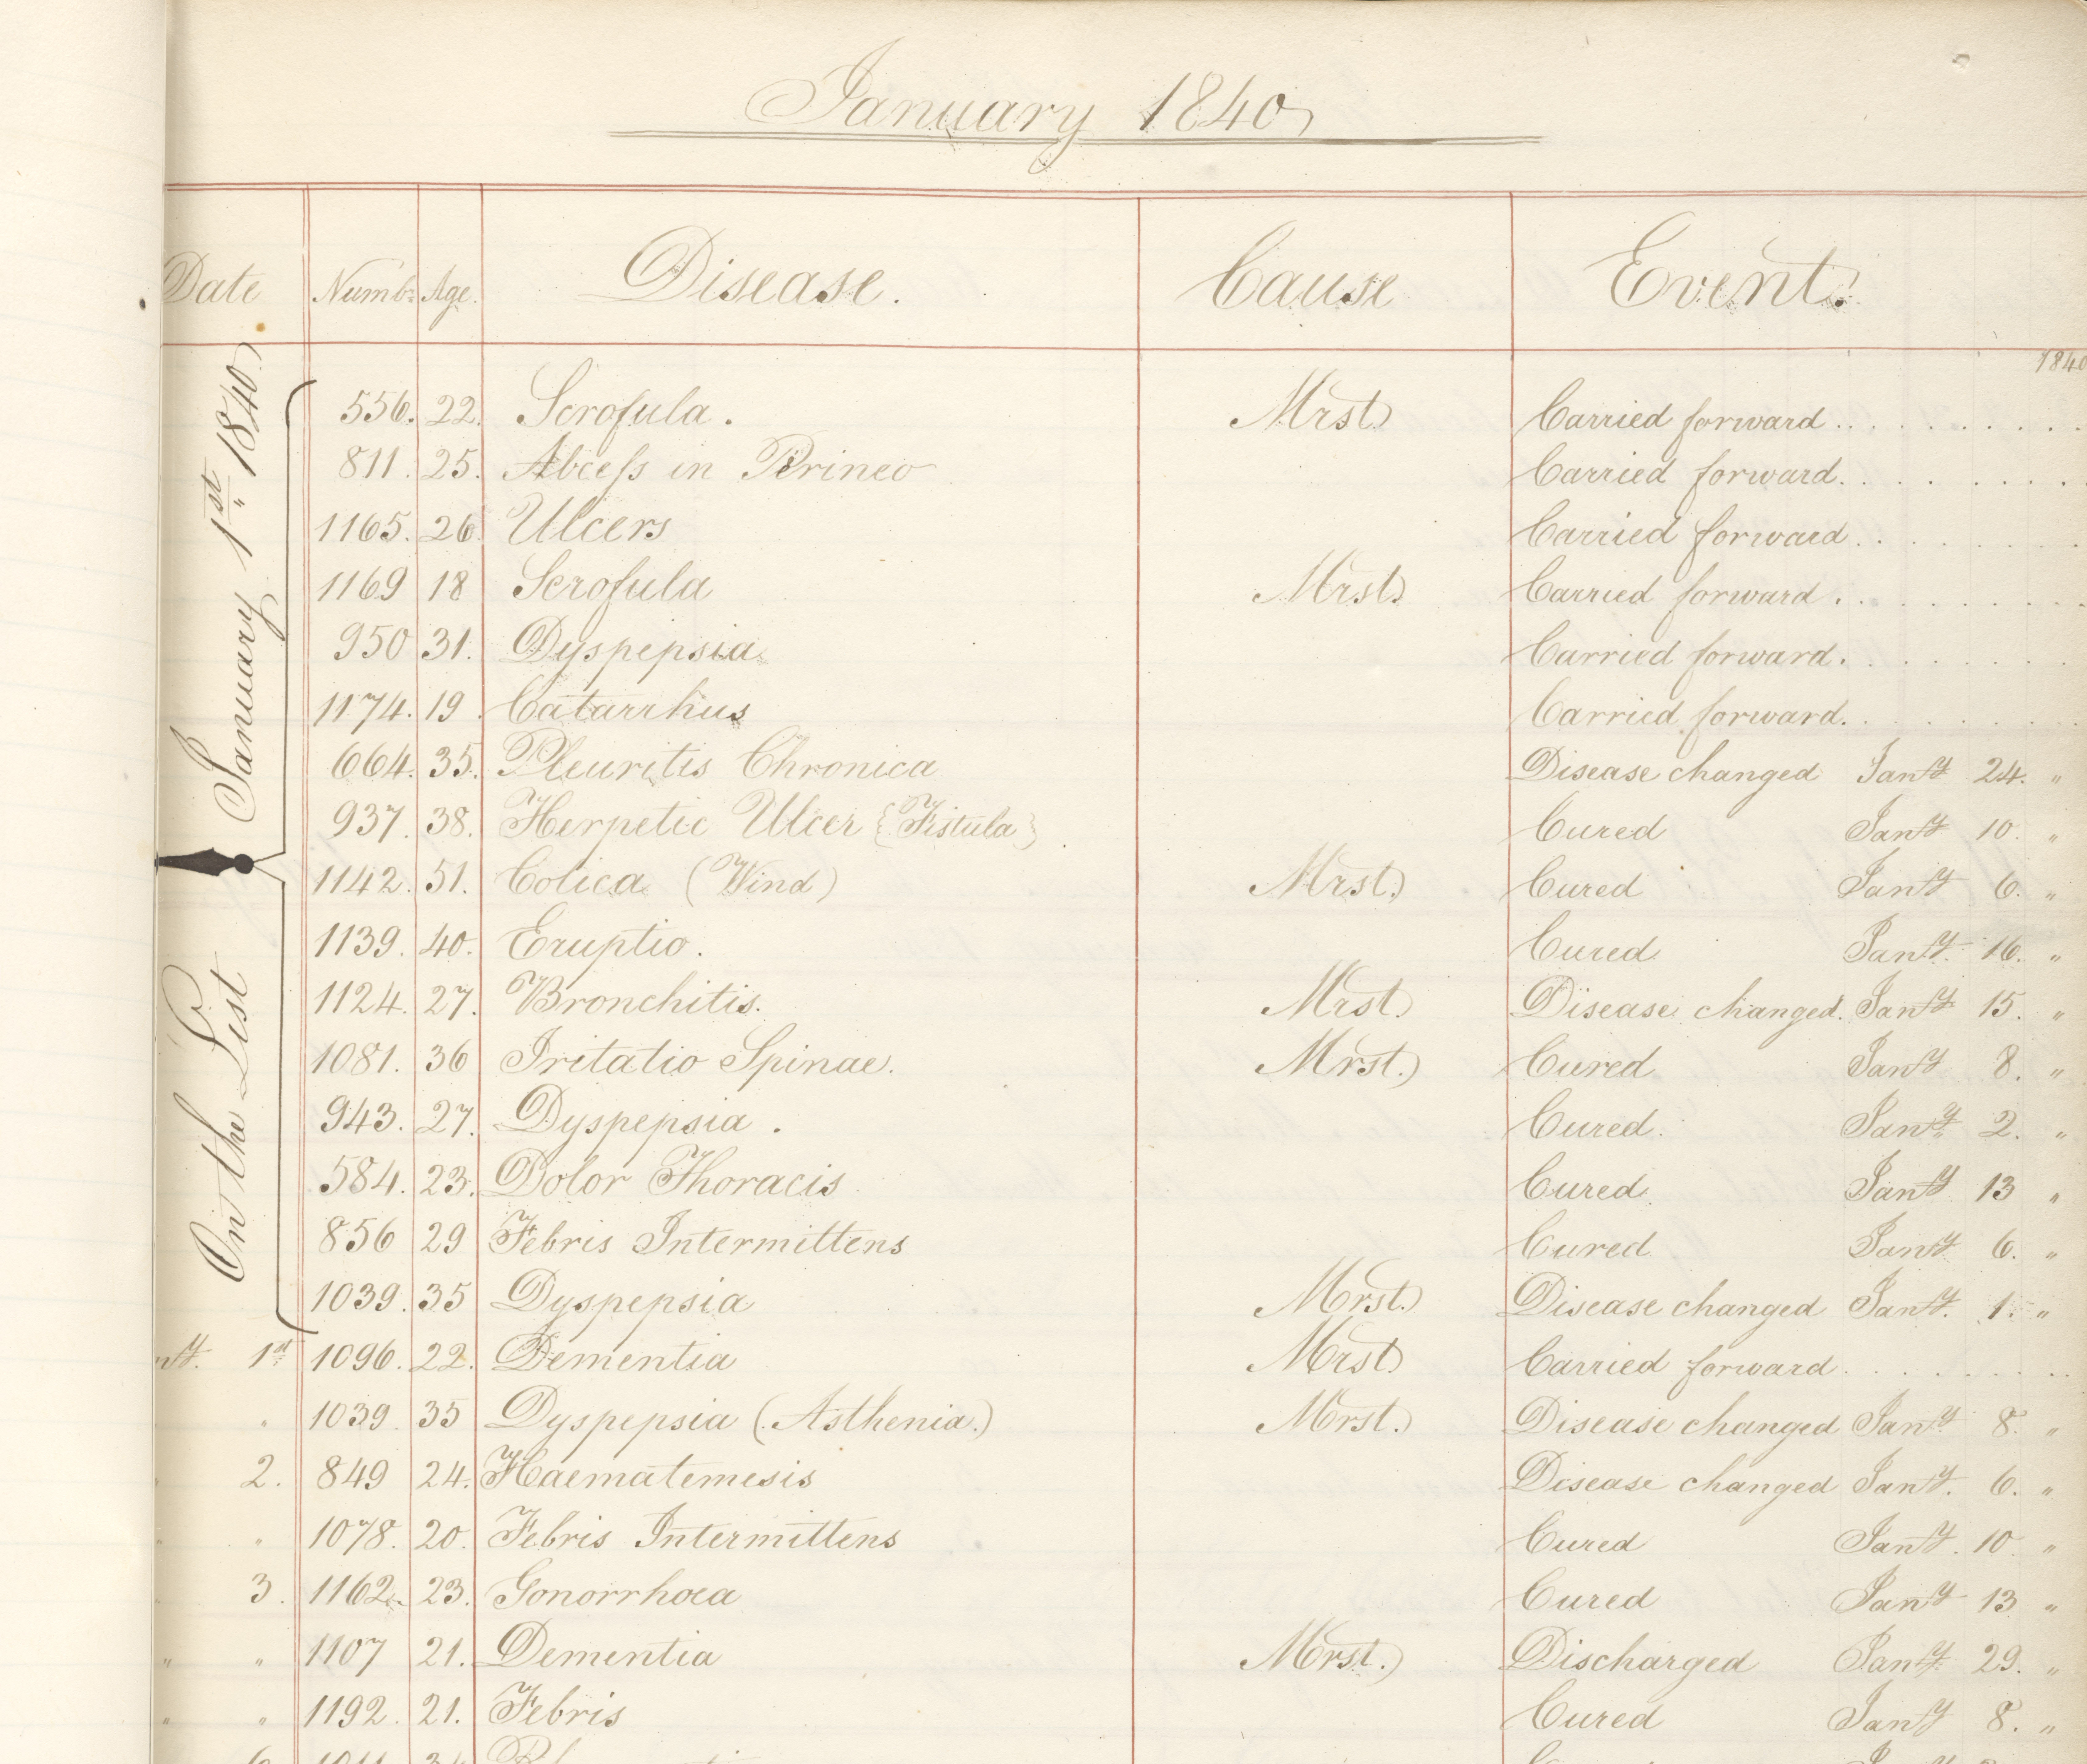 January 1840
Date Numbr. Age. Disease. Cause Event.
1840
On the List January 1st 1840
556. 22. Scrofula. Mrst. Carried forward
811. 25. Abcess in Perineo Carried forward
1165. 26. Ulcers Carried forward
1169 18 Scrofula Mrst. Carried forward
950 31. Dyspepsia Carried forward
1174. 19. Catarrhus Carried forward
664. 35. Pleuritis Chronica Disease changed Jany 24. "
937. 38. Herpetic Ulcer {Fistula} Cured Jany 10. "
1142. 51. Colica (Wind) Mrst. Cured Jany 6. "
1139. 40. Eruptio. Cured Jany. 16. "
1124. 27. Bronchitis. Mrst. Disease changed. Jany 15. "
1081. 36 Iritatio Spinae. Mrst. Cured Jany 8. "
943. 27. Dyspepsia. Cured. Jany 2. "
584. 23. Dolor Thoracis Cured Jany 13 "
856 29 Febris Intermittens Cured Jany 6. "
1039. 35 Dyspepsia Mrst. Disease changed Jany. 1. "
1st 1096. 22. Dementia Mrst. Carried forward
" 1039. 35 Dyspepsia (Asthenia.) Mrst. Disease changed Jany 8. "
2. 849 24. Haematemesis Disease changed Jany. 6. "
" 1078. 20. Febris Intermittens Cured Jany. 10 "
3. 1162. 23. Gonorrhoea Cured Jany 13 "
" " 1107 21. Dementia Mrst. Discharged Jany. 29. "
" " 1192. 21. Febris Cured Jany 8. "